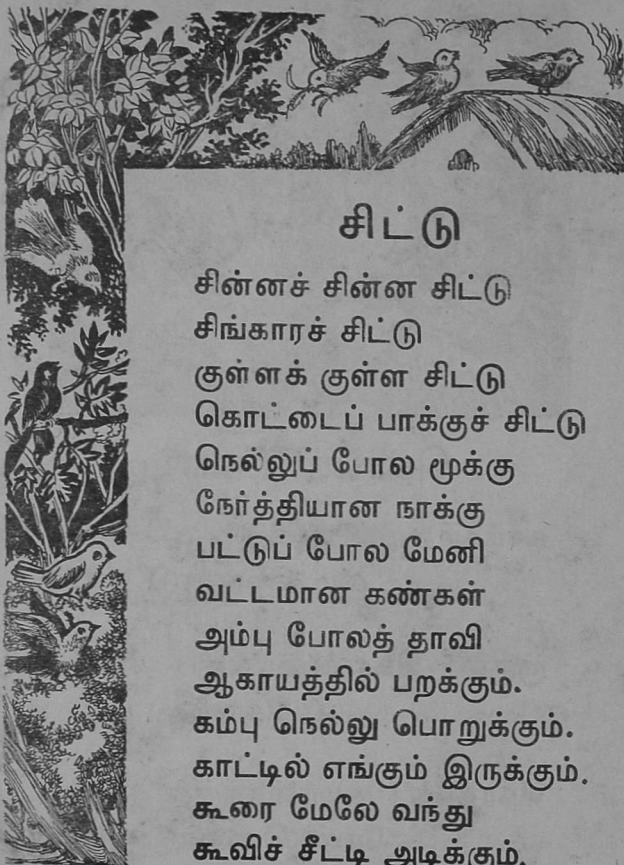 சிட்டு
சின்னச் சின்ன சிட்டு
சிங்காரச் சிட்டு
குள்ளக் குள்ள சிட்டு
கொட்டைப் பாக்குச் சிட்டு
நெல்லுப் போல மூக்கு
நேர்த்தியான நாக்கு
பட்டுப் போல மேனி
வட்டமான கண்கள்
அம்பு போலத் தாவி
ஆகாயத்தில் பறக்கும்.
கம்பு நெல்லு பொறுக்கும்.
காட்டில் எங்கும் இருக்கும்.
கூரை மேலே வந்து
கூவிச் சீட்டி அடிக்கும்.